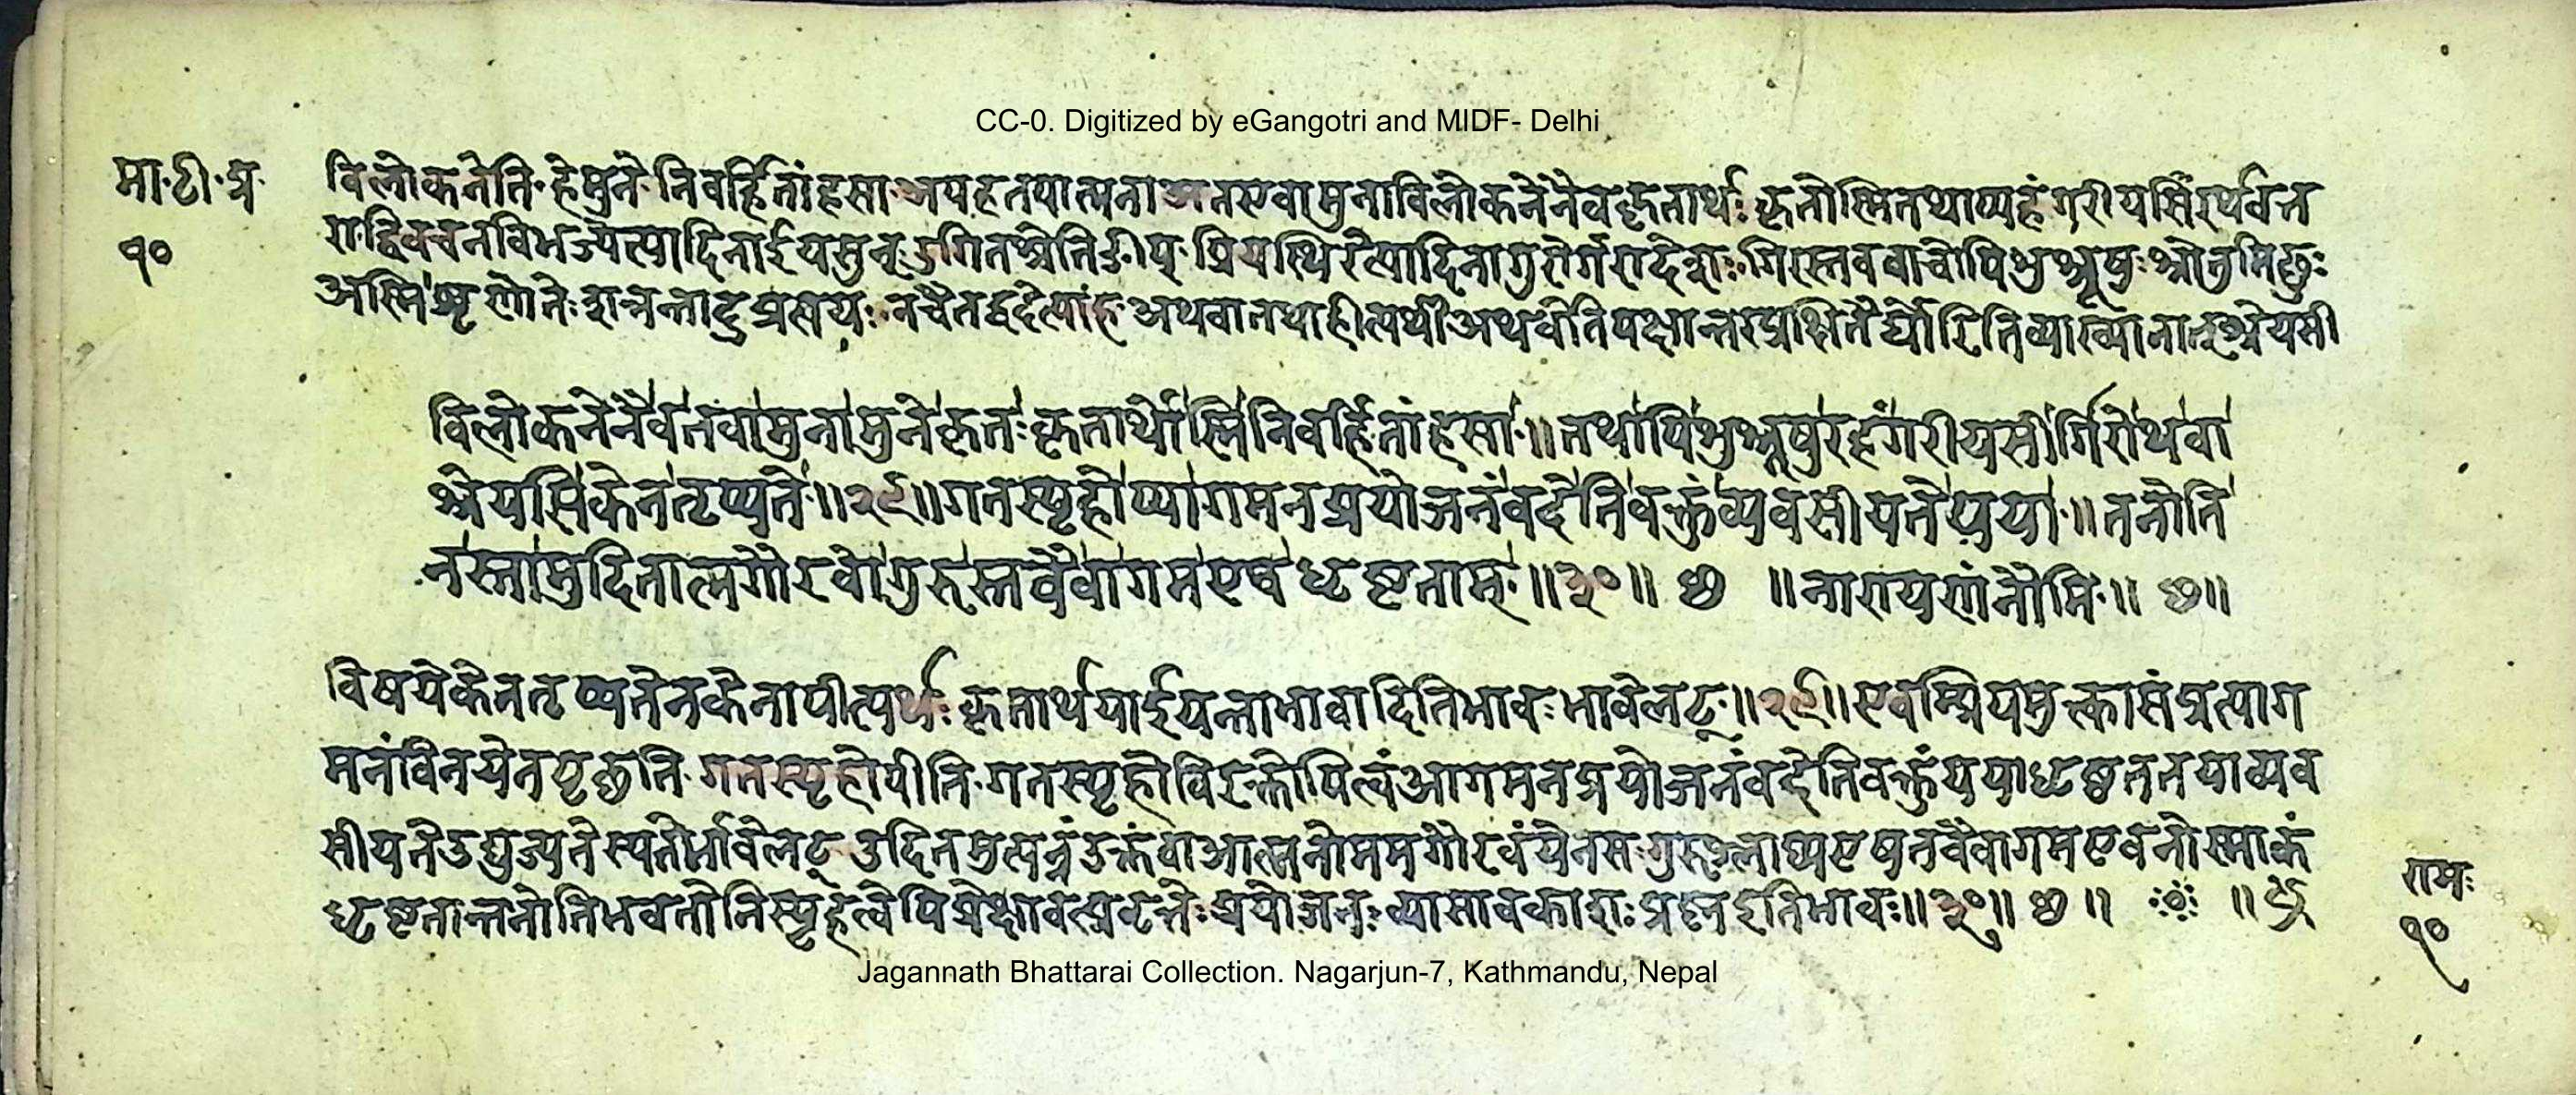 CC-0. Digitized by eGangotri and MIDF- Delhi
मा॰टी॰प्र॰
१०
विलोकनेति॰हेमुने॰निवर्हितांहसा॰अपहतपाप्मनाअतएवामुनाविलोकनेनैवकृतार्थः कृतोस्मितथाप्यहंगरीयसीरर्थवत्त
राद्विवचनविभज्येत्यादिनाईयसुन्॰उगितश्चेतिङीप्॰प्रियस्थिरेत्यादिनागुरोर्गरादेशः॰गिरस्तववाचोपिशुश्रूषुः श्रोतुमिछुः
अस्मिशृणोतेः सन्नन्तादुप्रत्ययः॰नचैतद्वृथेत्याह॰अथवातथाहीत्यर्थीअथवेतिपक्षान्तर व्याख्यानात्॰श्रेयसी
विलोकनेनैवतवामुनामुनेकृतः कृतार्थोस्मिनिवर्हितांहसा॰॥तथापिशुश्रूषुरहंगरीयसीर्गिरोथवा
श्रेयसिकेनतृप्यते॰॥२९॥गतस्पृहोप्यागमनप्रयोजनंवदेतिवक्तुंव्यवसीयतेयया॰॥तनोति
नस्तामुदितात्मगौरवोगुरुस्तवैवागमएषधृष्टताम्॰॥३०॥ छ ॥नारायणंनौमि॰॥ छ॥
विषयेकेनतृप्यतेनकेनापीत्यर्थः कृतार्थयाईयत्ताभावादितिभावः भावेलट्॰॥२९॥एवम्प्रियमुक्तासंप्रत्याग
मनंविनयेनपृछति॰गतस्पृहोपीति॰गतस्पृहोविरक्तोपित्वंआगमनप्रयोजनंवदेतिवक्तुंययाधृष्टततयाव्यव
सीयतेउद्युज्यतेस्यतेर्भावेलट् उदितमुत्पन्नंउक्तंवाआत्मनोममगौरवंयेनसःगुरुः श्लाघ्यएषतवैवागमएवनोस्माकं
धृष्टतान्तनोतिभवतोनिस्पृहत्वेपिप्रेक्षावत्प्रवृत्तेः प्रयोजन व्याप्तावकाशः प्रश्नइतिभावः॥३०॥ छ ॥ ॥ छ
रामः
१०
Jagannath Bhattarai Collection. Nagarjun-7, Kathmandu, Nepal